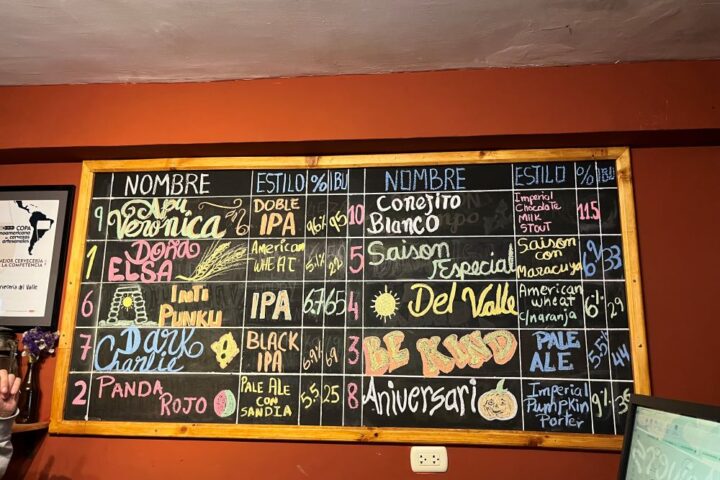 NOMBRE ESTILO % IBU NOMBRE ESTILO % IBU
9 Apu Veronica DOBLE IPA 9.6% 95
10 Conejito Blanco Imperial Chocolate Milk STOUT 11.5
1 DOÑA ELSA American WHEAT 5.1% 22
5 Saison Especial SAISON con Maracuya 6% 33
6 Inti Punku IPA 6.7 65
4 Del Valle American wheat c/naranja 6% 29
7 Dark Charlie BLACK IPA 6.9% 69
3 BE KIND PALE ALE 5.5% 44
2 PANDA ROJO PALE ALE CON SANDIA 5.5 25
8 Aniversari Imperial Pumpkin Porter 9%
COPA
cervezas
artesanales
MEJOR CERVECERÍA
LA COMPETENCIA
del Valle